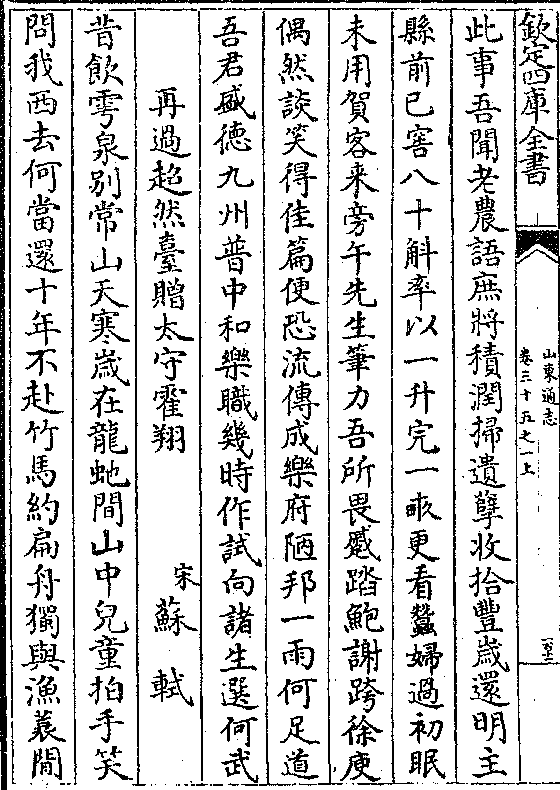 欽定四庫全書
山東通志
卷三十五之一上
此事吾聞老農語庶將積潤掃遺孽收拾豐歲還明主
縣前已窖八十斛率以一升完一畝更看蠶婦過初眠
未用賀客来旁午先生筆力吾所畏蹙踏鮑謝跨徐庾
偶然談笑得佳篇便恐流傳成樂府陋邦一雨何足道
吾君盛德九州普中和樂職幾時作試向諸生選何武
再過超然臺贈太守霍翔
宋蘇軾
昔飲雩泉别常山天寒歲在龍虵間山中兒童拍手笑
問我西去何當還十年不赴竹馬約扁舟獨與漁蓑閒